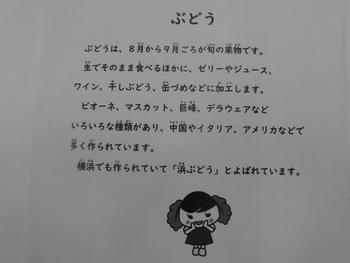 ぶどう
ぶどうは、８月から９月ごろが旬の果物です。
生でそのまま食べるほかに、ゼリーやジュース、
ワイン、干しぶどう、缶づめなどに加工します。
ピオーネ、マスカット、巨峰、デラウェアなど
いろいろな種類があり、中国やイタリア、アメリカなどで
多く作られています。
横浜でも作られていて「浜ぶどう」とよばれています。